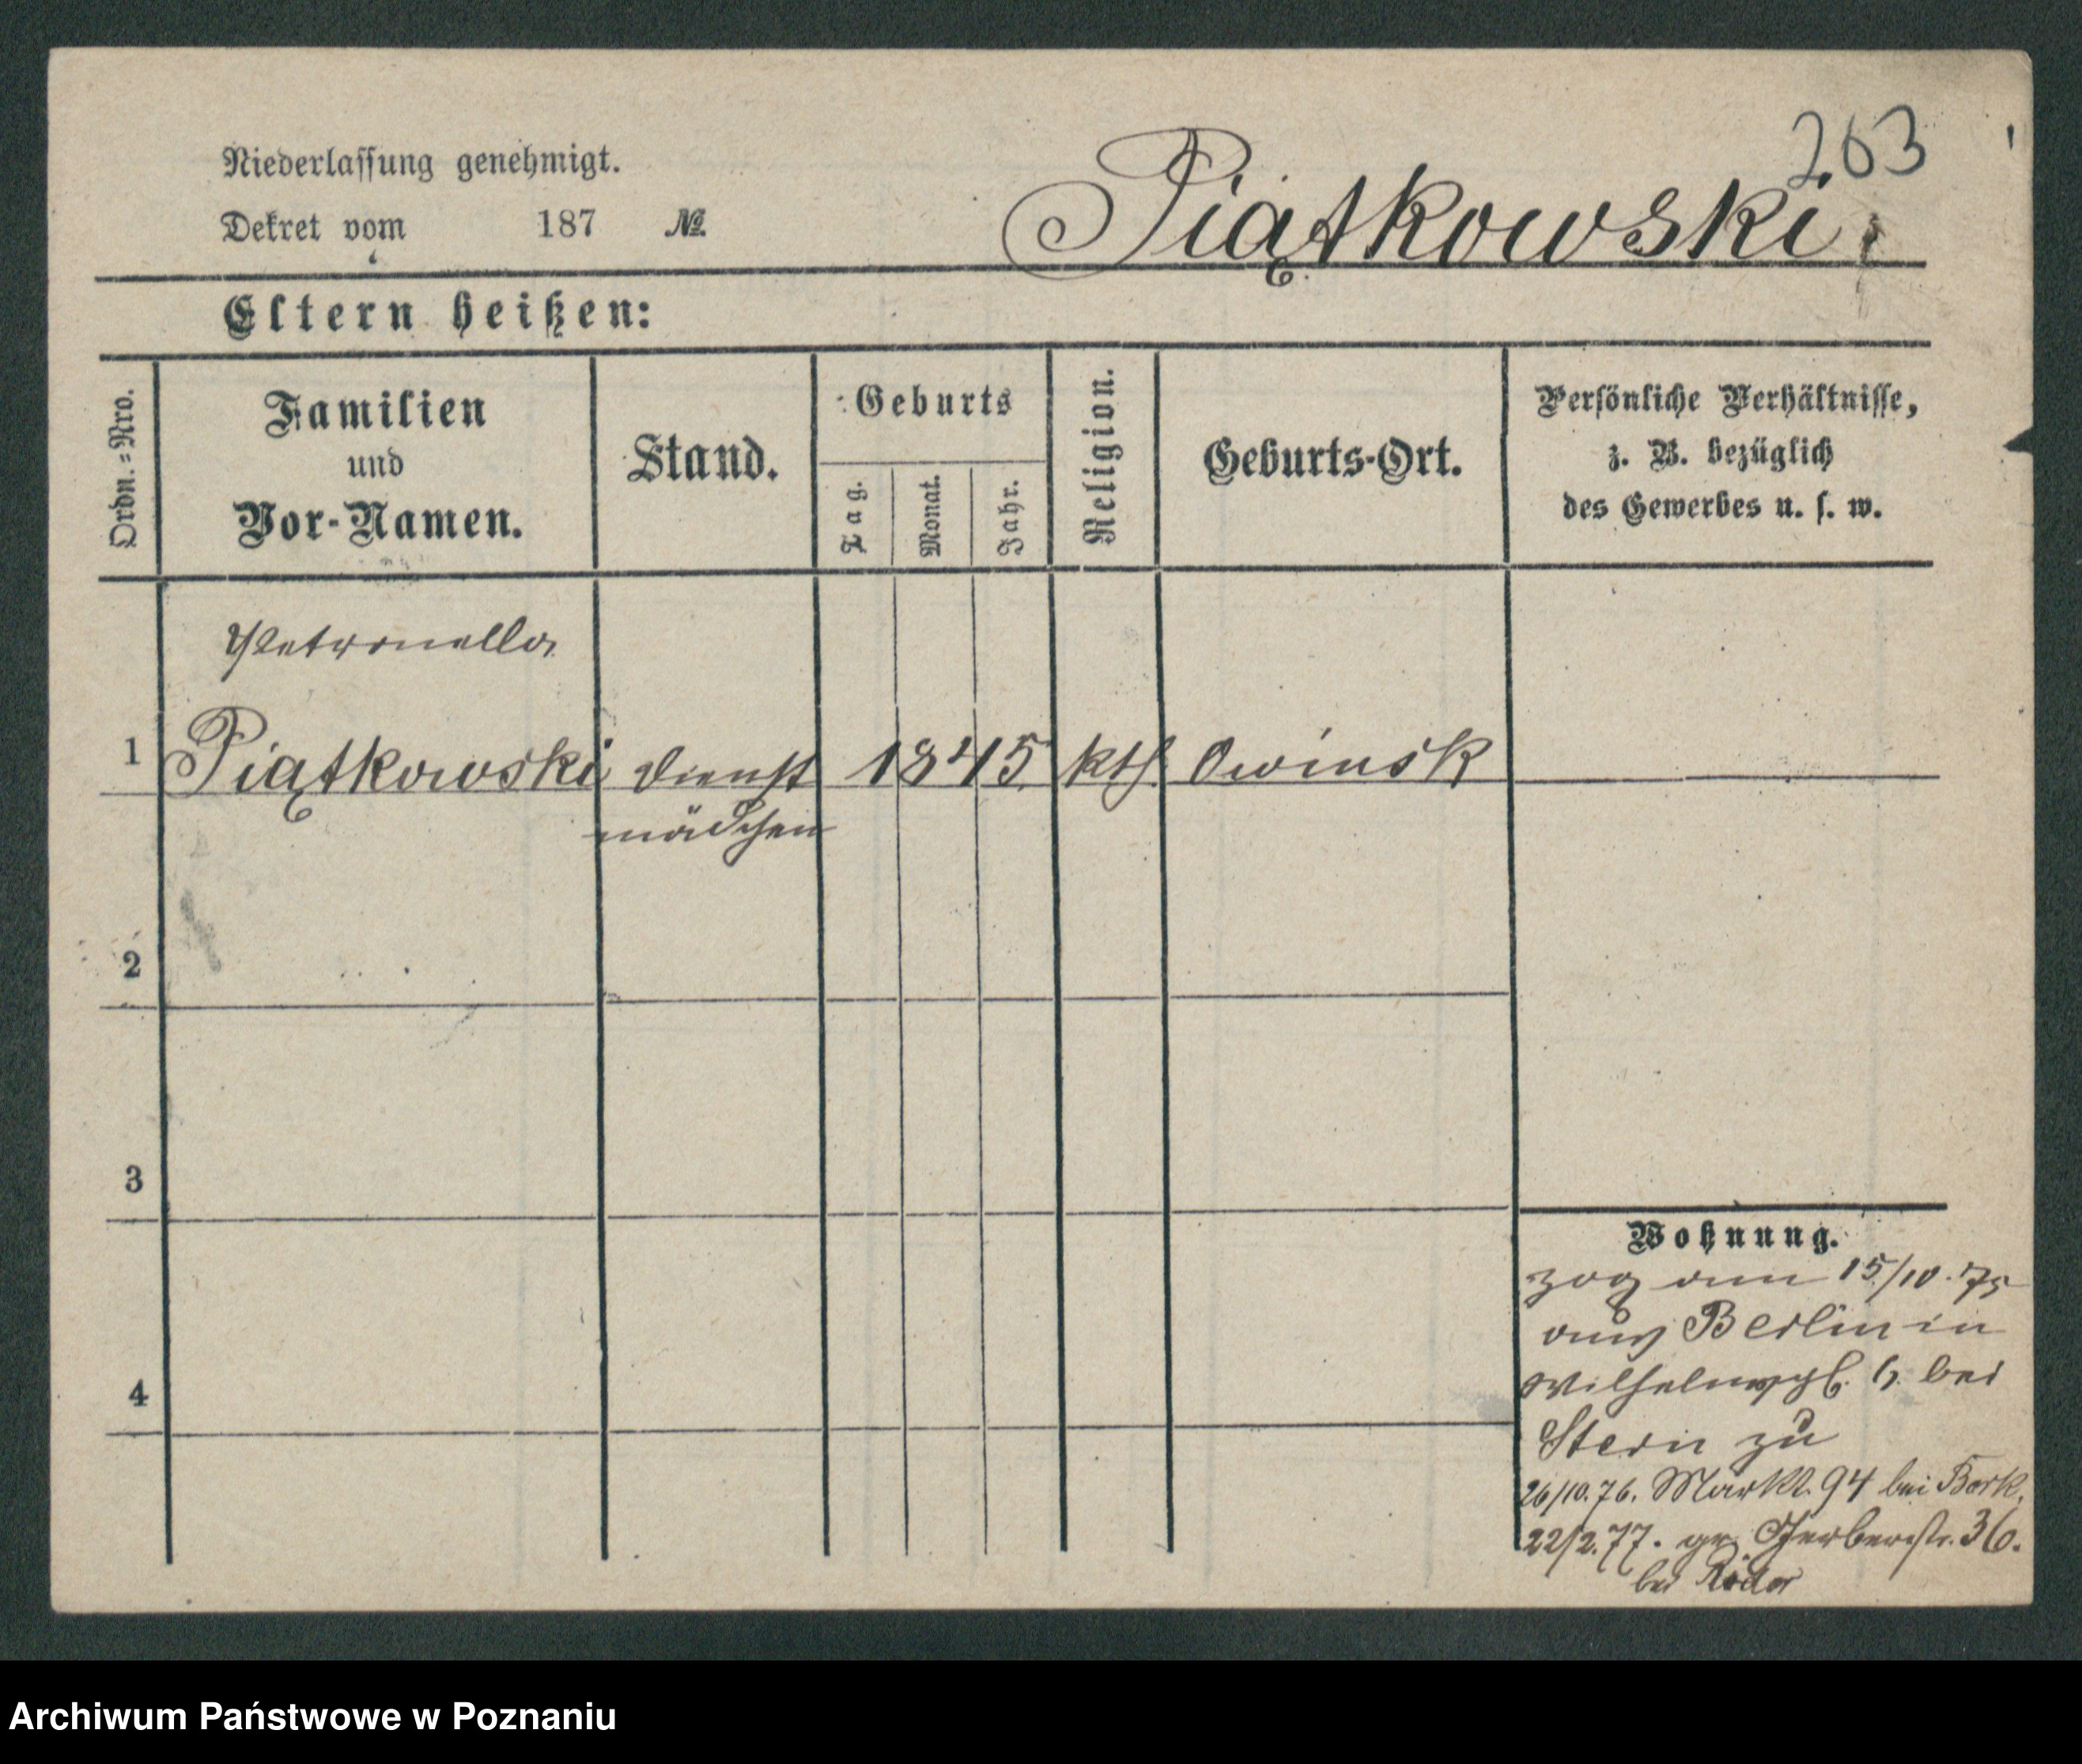 263
Niederlassung genehmigt.
Dekret vom 187 №
Piątkowski
Eltern heißen:
Ordn.=Nro.
Familien
und
Vor-Namen.
Stand.
Geburts
Tag.
Monat.
Jahr.
Religion.
Geburts-Ort.
Persönliche Verhältnisse,
z. B. bezüglich
des Gewerbes u. s. w.
Petronella
1 Piątkowski Dienst 1845 kth. Owinsk
mädchen
2
3
4
Wohnung.
zog am 15/10. 75
aus Berlin in
Wilhelmspl. bei
Stern zu
26/10. 76. Markt 94 bei Bork.
22/2. 77. gr. Gerberstr. 36.
bei
Archiwum Państwowe w Poznaniu